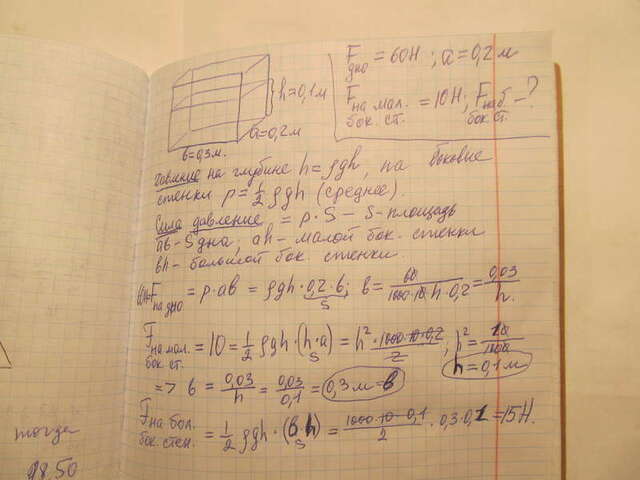 F дно = 60Н ; a = 0,2 м
F на мал. бок. ст. = 10Н; F на б. бок. ст. - ?
h = 0,1 м
a = 0,2 м
b = 0,3 м.
давление на глубине h = ρgh, на боковые
стенки p = 1/2 ρgh (среднее).
Сила давление = p · S - S - площадь
ab - S дна; ah - малой бок. стенки
bh - большой бок. стенки.
60Н = F на дно = p · ab = ρgh · 0,2 · b; b = 60/(1000·10·h·0,2) = 0,03/h.
S
F на мал. бок. ст. = 10 = 1/2 ρgh · (h·a) = h² · 1000·10·0,2/2; h² = 10/1000
S
h = 0,1 м
=> b = 0,03/h = 0,03/0,1 = 0,3 м = b
F на бол. бок. стен. = 1/2 ρgh · (b h) = 1000·10·0,1/2 · 0,3·0,1 = 15Н.
S
тогда
98,50